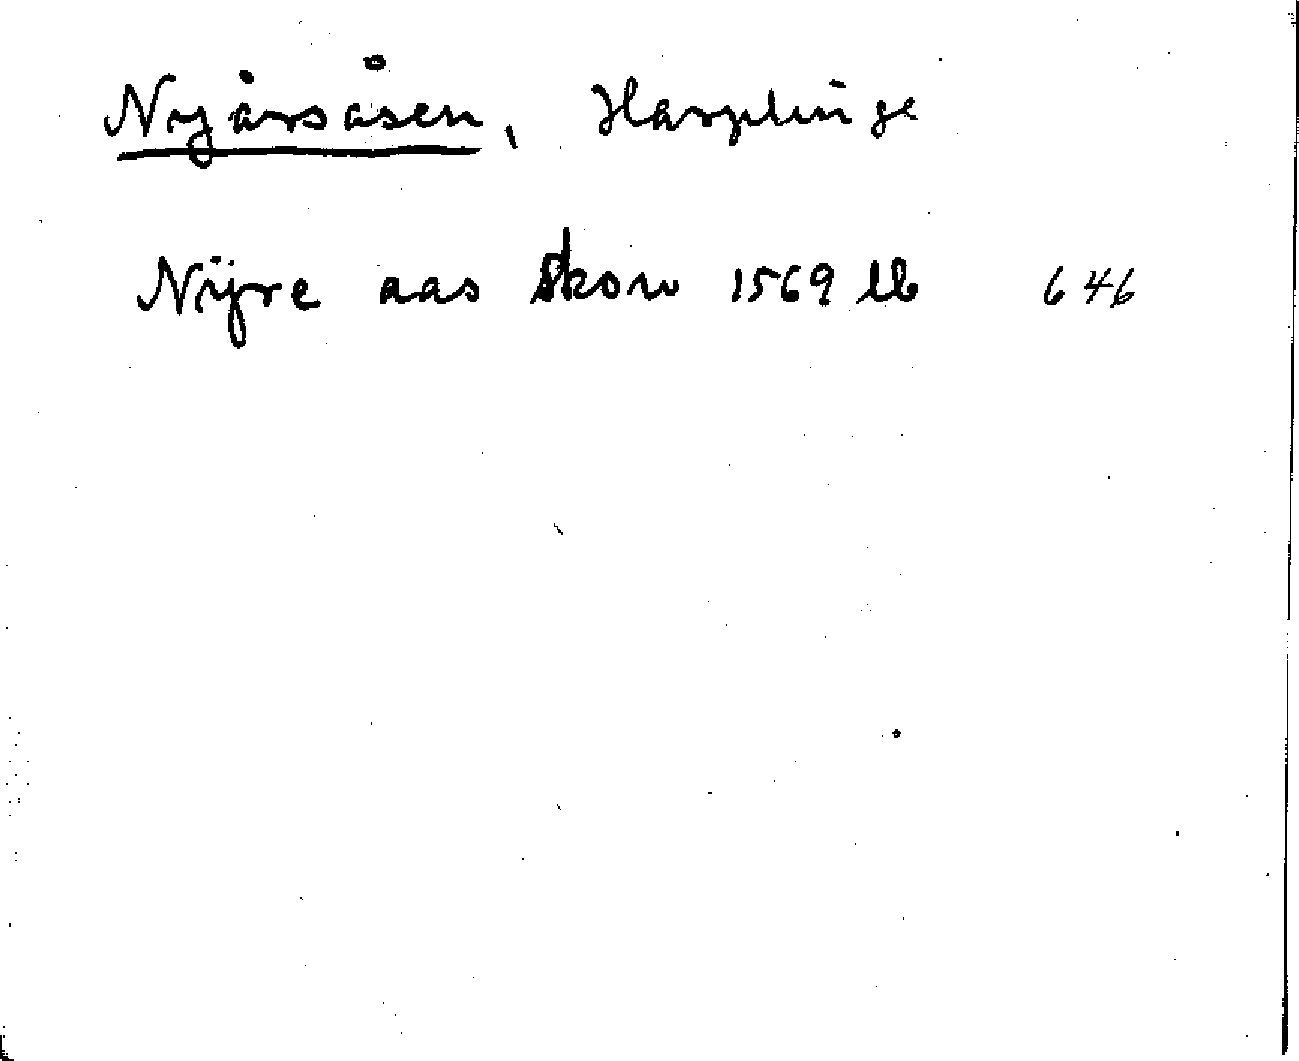 Nyårsåsen, Harplinge
Nijre aas Skow 1569 lb 646